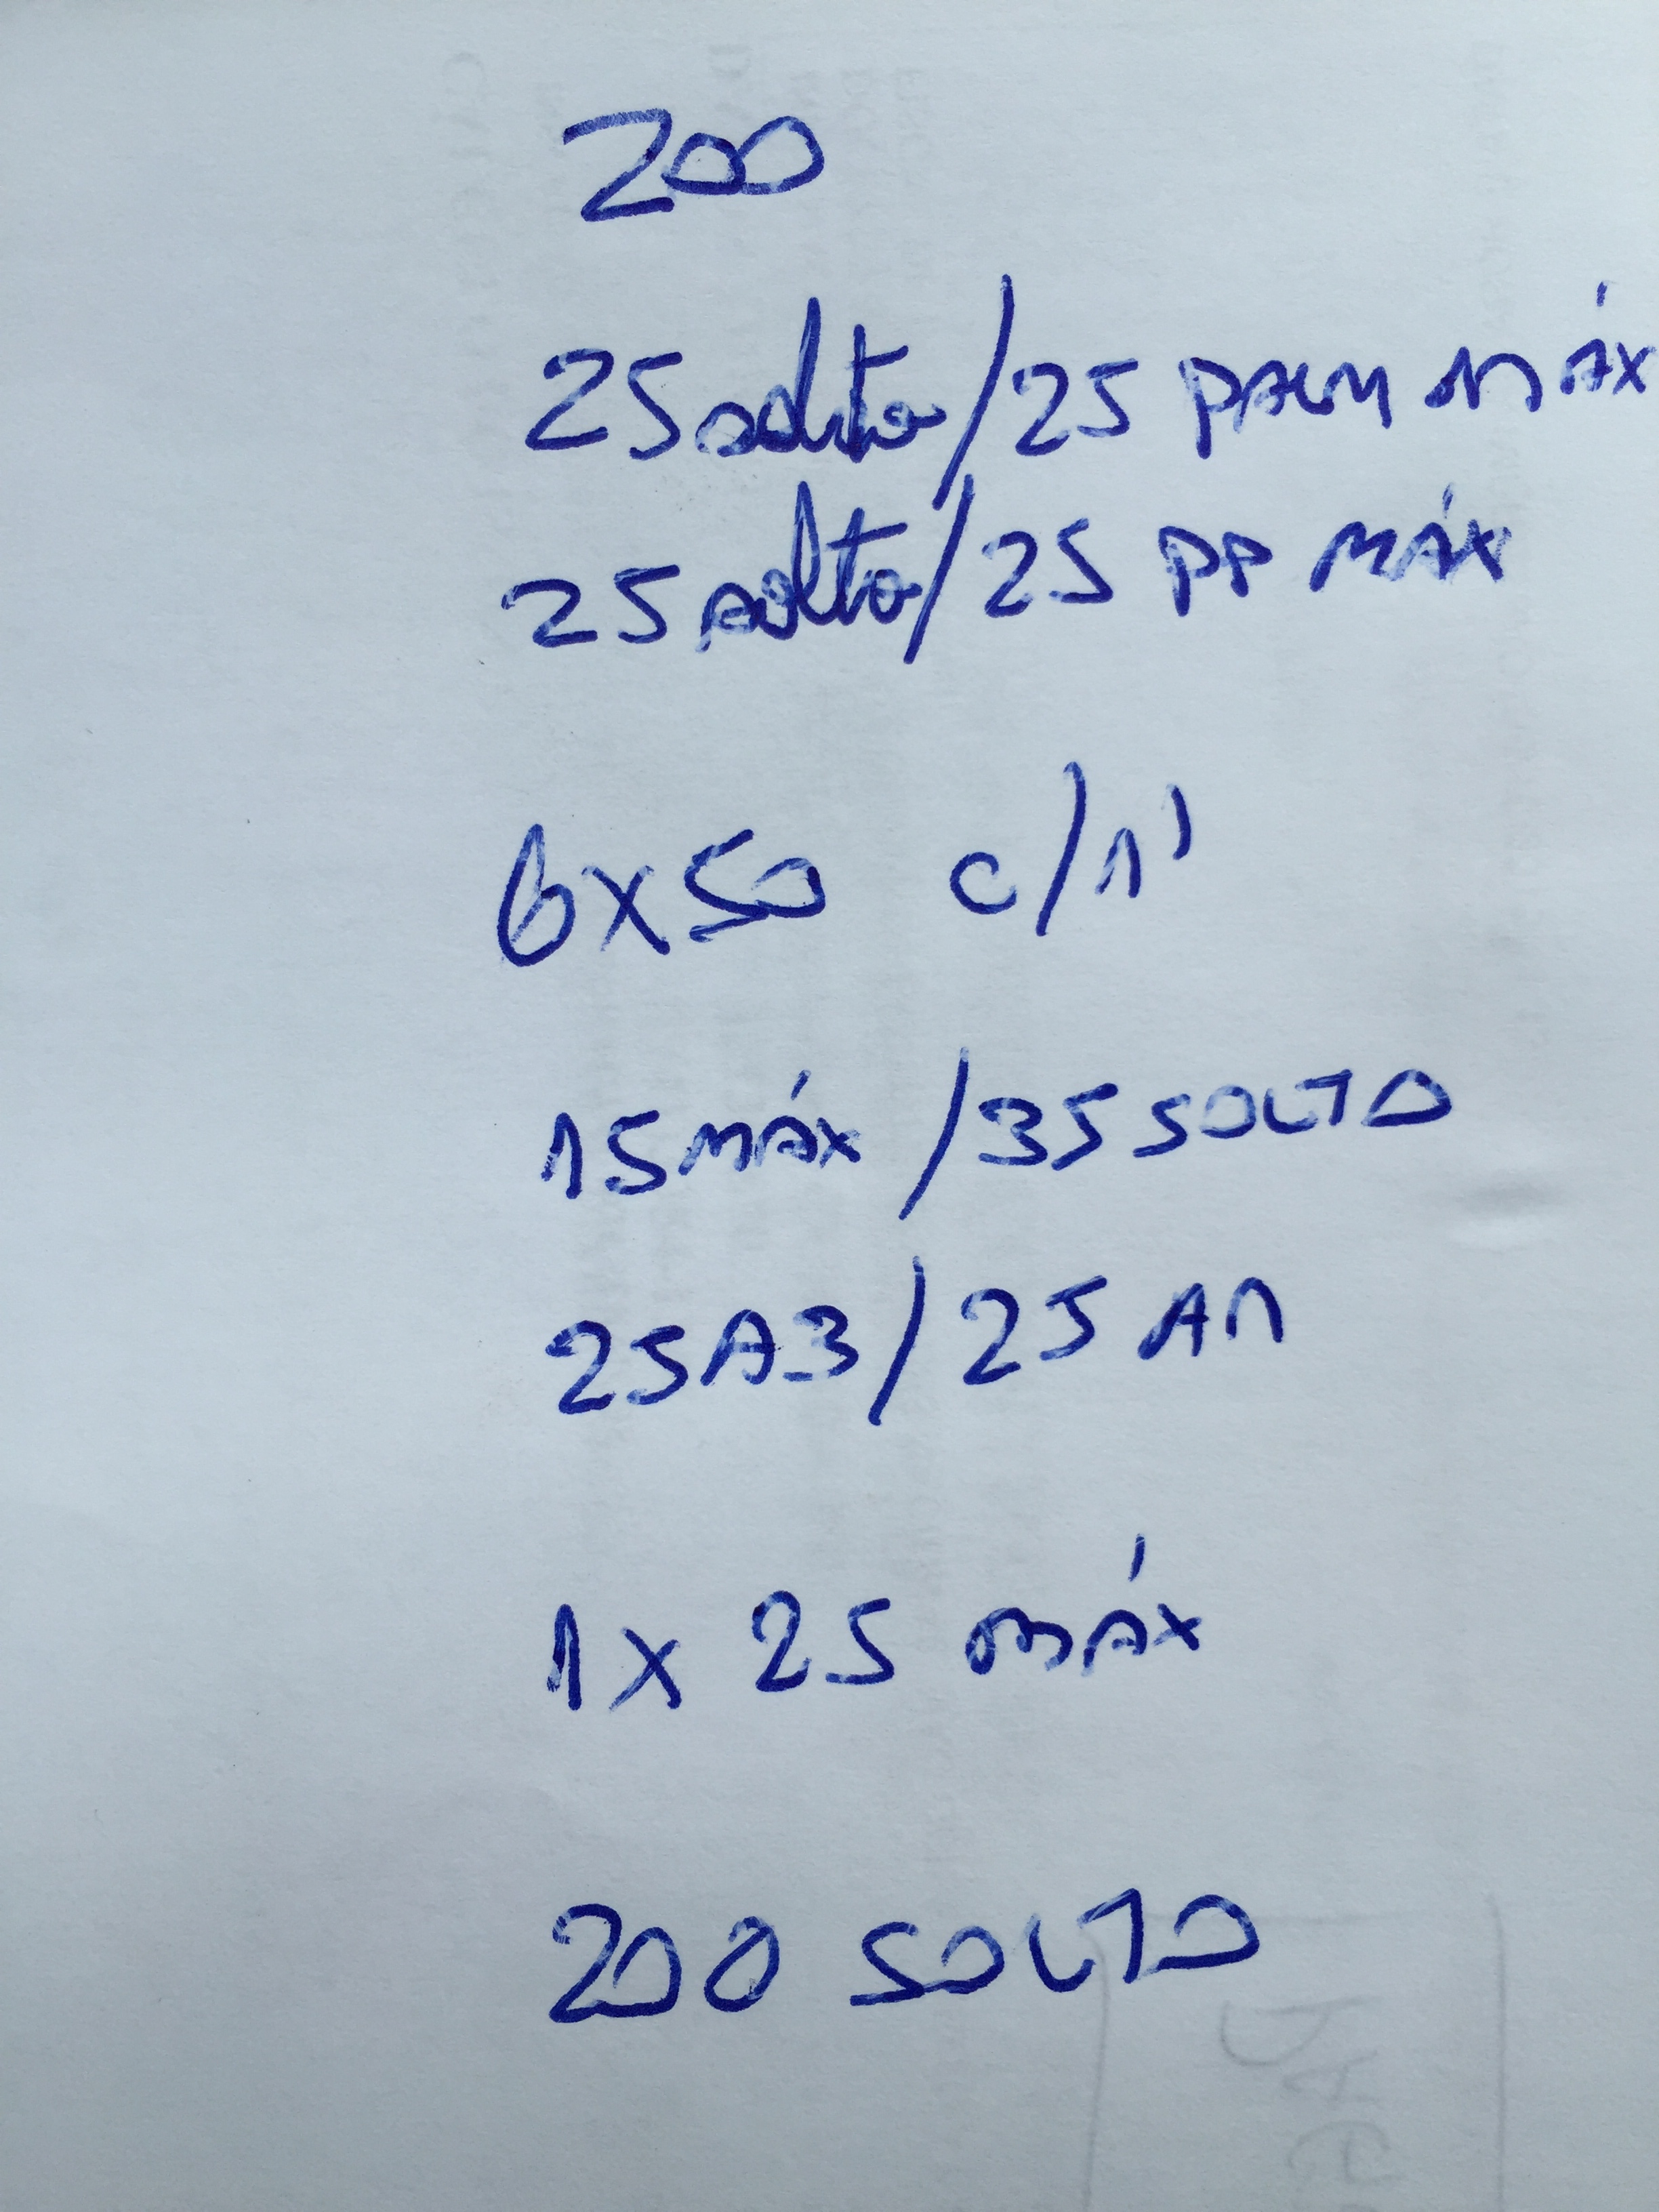 200
25 solto/25 PALM MÁX
25 solto/25 PP MÁX
6x50 c/1'
15 MÁX /35 SOLTO
25 A3/25 A1
1 x 25 MÁX
200 SOLTO